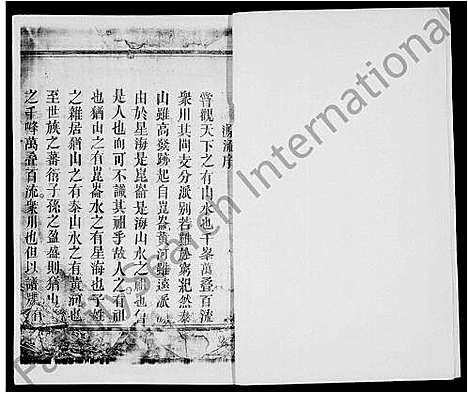 源流序
嘗觀天下之有山水也千峯萬疊百流
衆川其間支分派別若難勝窮然泰
山雖高發跡起自崑崙黃河雖遠派
由於星海是崑崙是海山水之祖也
是人也而可不識其祖乎故人之有祖
也猶山之有崑崙水之有星海也
之雜居猶山之有泰山水之有黃河也
至世族之蕃衍子孫之盈盛則猶山
之千峰萬疊百流衆川也但以譜
International